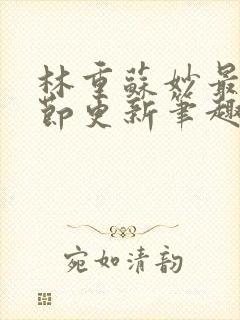 林重蘇妙最
節更新筆趣
宛如清韵